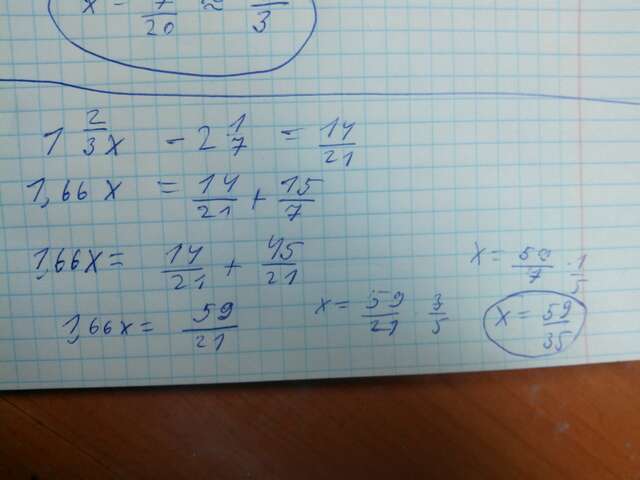 x = 7/20 ≈ /3
1 2/3 x - 2 1/7 = 14/21
1,66 x = 14/21 + 15/7
1,66x = 14/21 + 45/21
1,66x = 59/21
x = 59/21 · 3/5
x = 59/7 · 1/5
x = 59/35